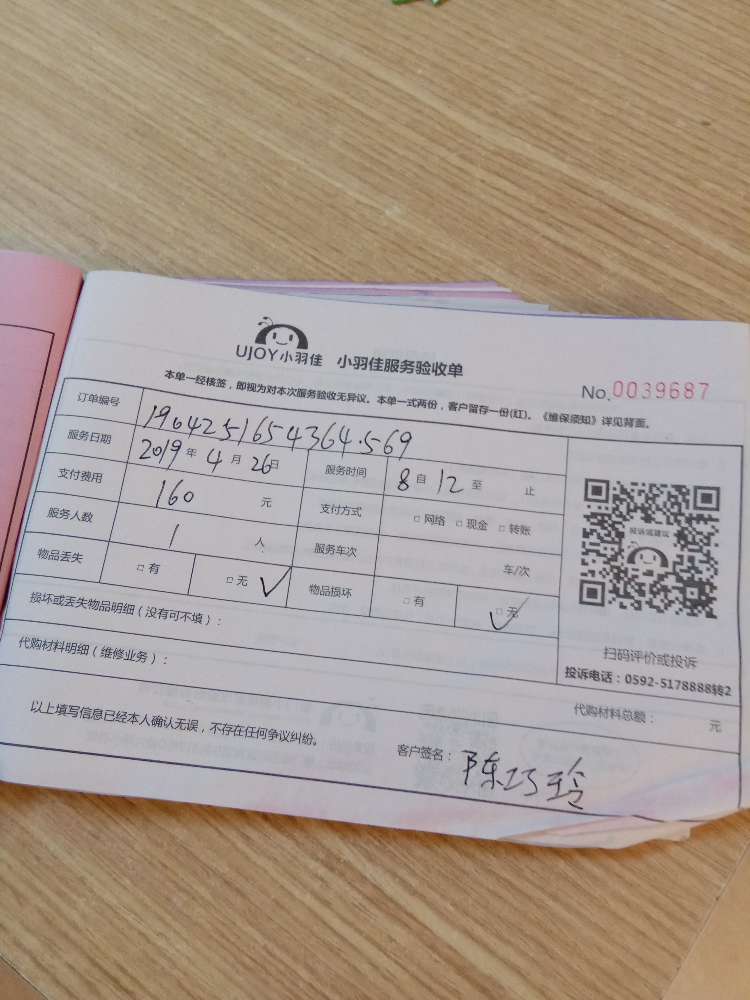 UJOY小羽佳 小羽佳服务验收单
No.0039687
本单一经核签，即视为对本次服务验收无异议。本单一式两份，客户留存一份(红)。《维保须知》详见背面。
订单编号 1904251654364.569
服务日期 2019年4月26日 服务时间 8自12至 止
支付费用 160 元 支付方式 □网络 □现金 □转账
服务人数 1 人 服务车次 车/次
物品丢失 □有 □无 ✓ 物品损坏 □有 □无 ✓
损坏或丢失物品明细（没有可不填）：
投诉或建议
扫码评价或投诉
投诉电话：0592-5178888转2
代购材料明细（维修业务）： 代购材料总额： 元
以上填写信息已经本人确认无误，不存在任何争议纠纷。 客户签名：陈巧玲